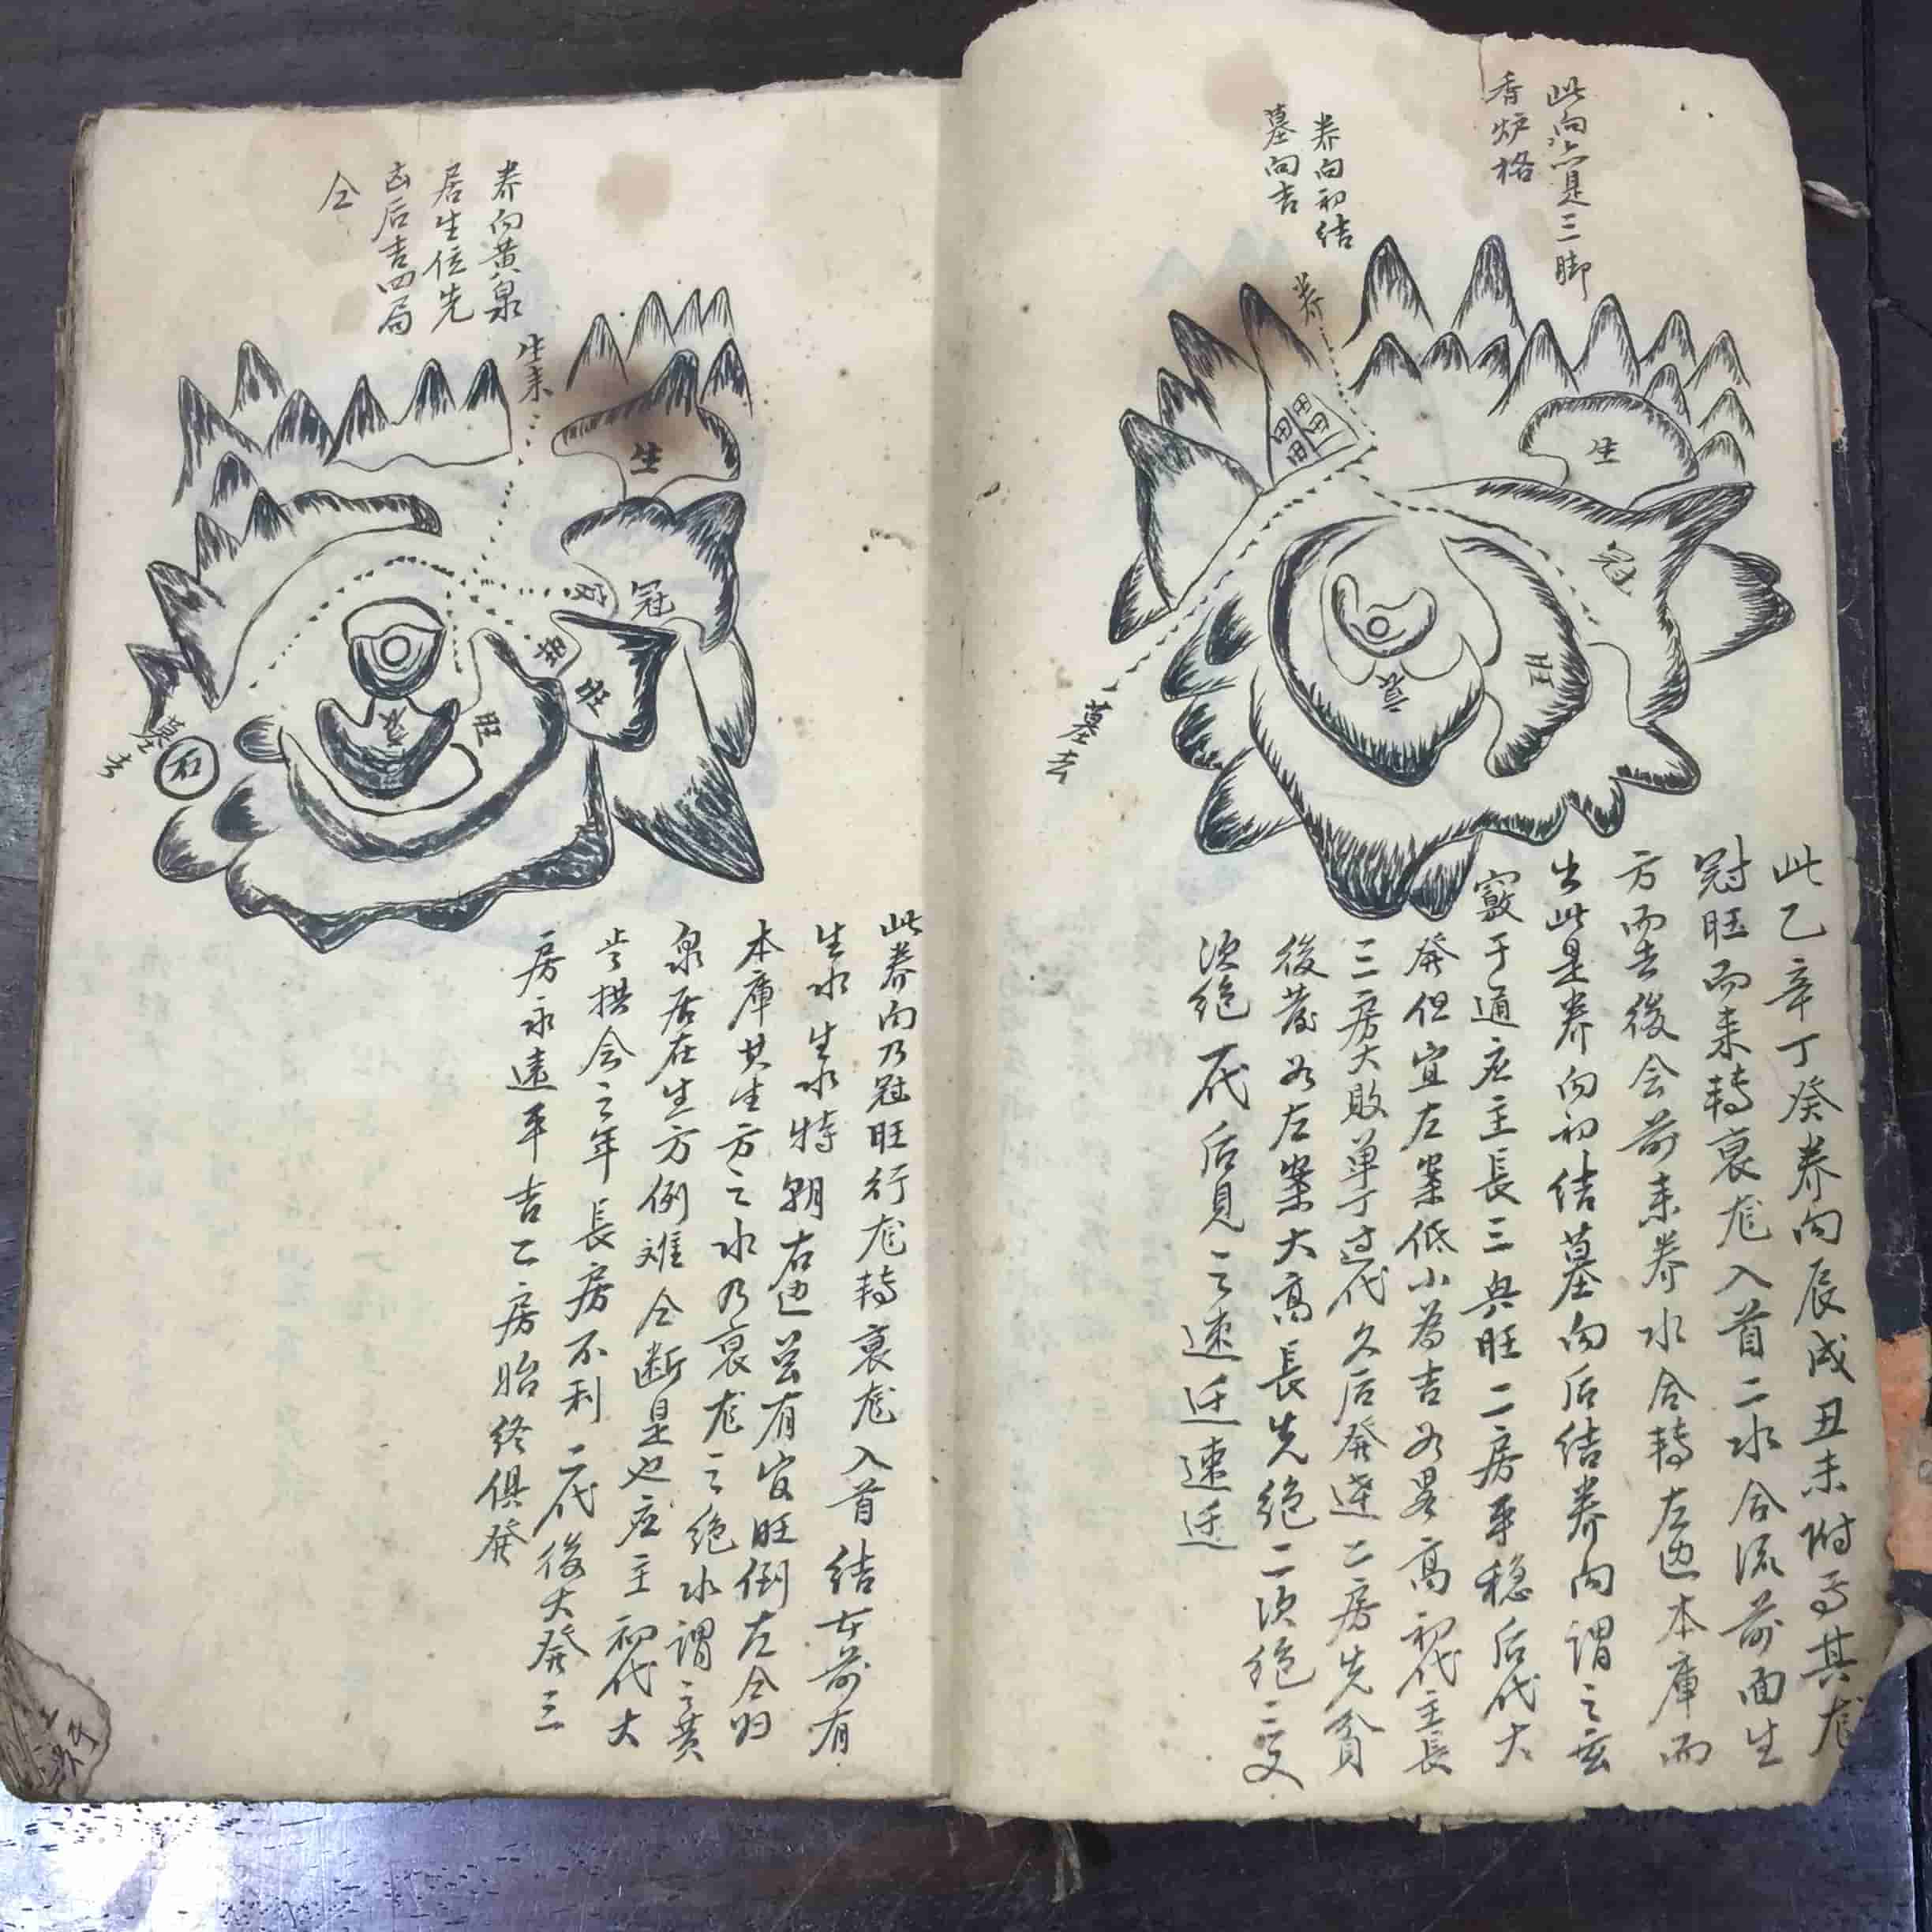 此向亦是三脚
香炉格
养向初结
墓向吉
养
生
冠
旺
衰
墓去
此乙辛丁癸养向辰戌丑未附焉其龙
冠旺而来转衰龙入首二水合流前面生
方而去後会前来养水合转左边本庫而
出此是养向初结墓向后结养向谓之玄
竅于通应主長三興旺二房平稳后代大
発但宜左案低小為吉若畧高初代主長
三房大敗单丁过代久后発達二房先貧
後발若左案大高長先绝二次绝三又
次绝一代后見之速迁速迁
养向黄泉
居生位先
凶后吉四局
仝
生来
生
官
冠
旺
旺
衰
墓去
石
此养向乃冠旺行龙转衰龙入首结在前有
生水生水特朝右边並有官旺倒左仝归
本庫其生方之水乃衰龙之绝水谓之黄
泉居在生方例难仝断是也应主初代大
步拱会之年長房不利二代後大発三
房永遠平吉二房始终俱発